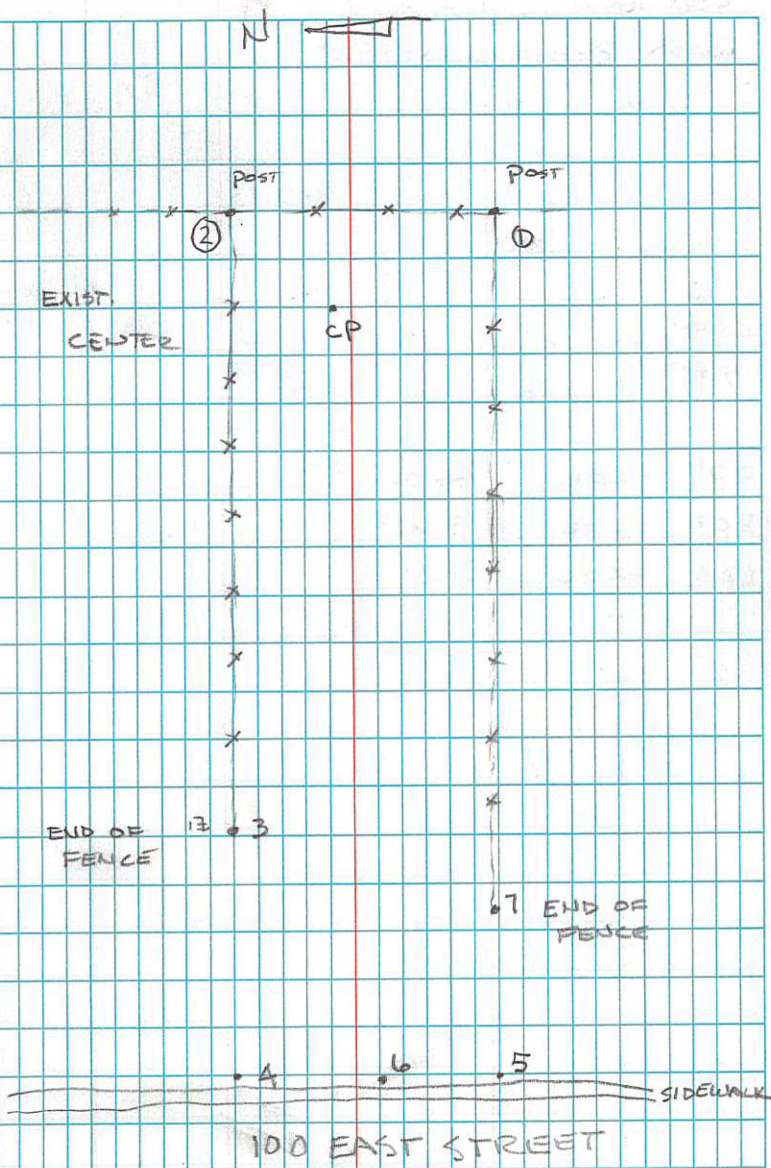 N
POST
POST
②
①
EXIST.
CENTER
CP
END OF
FENCE
3
7 END OF
FENCE
4
6
5
SIDEWALK
100 EAST STREET